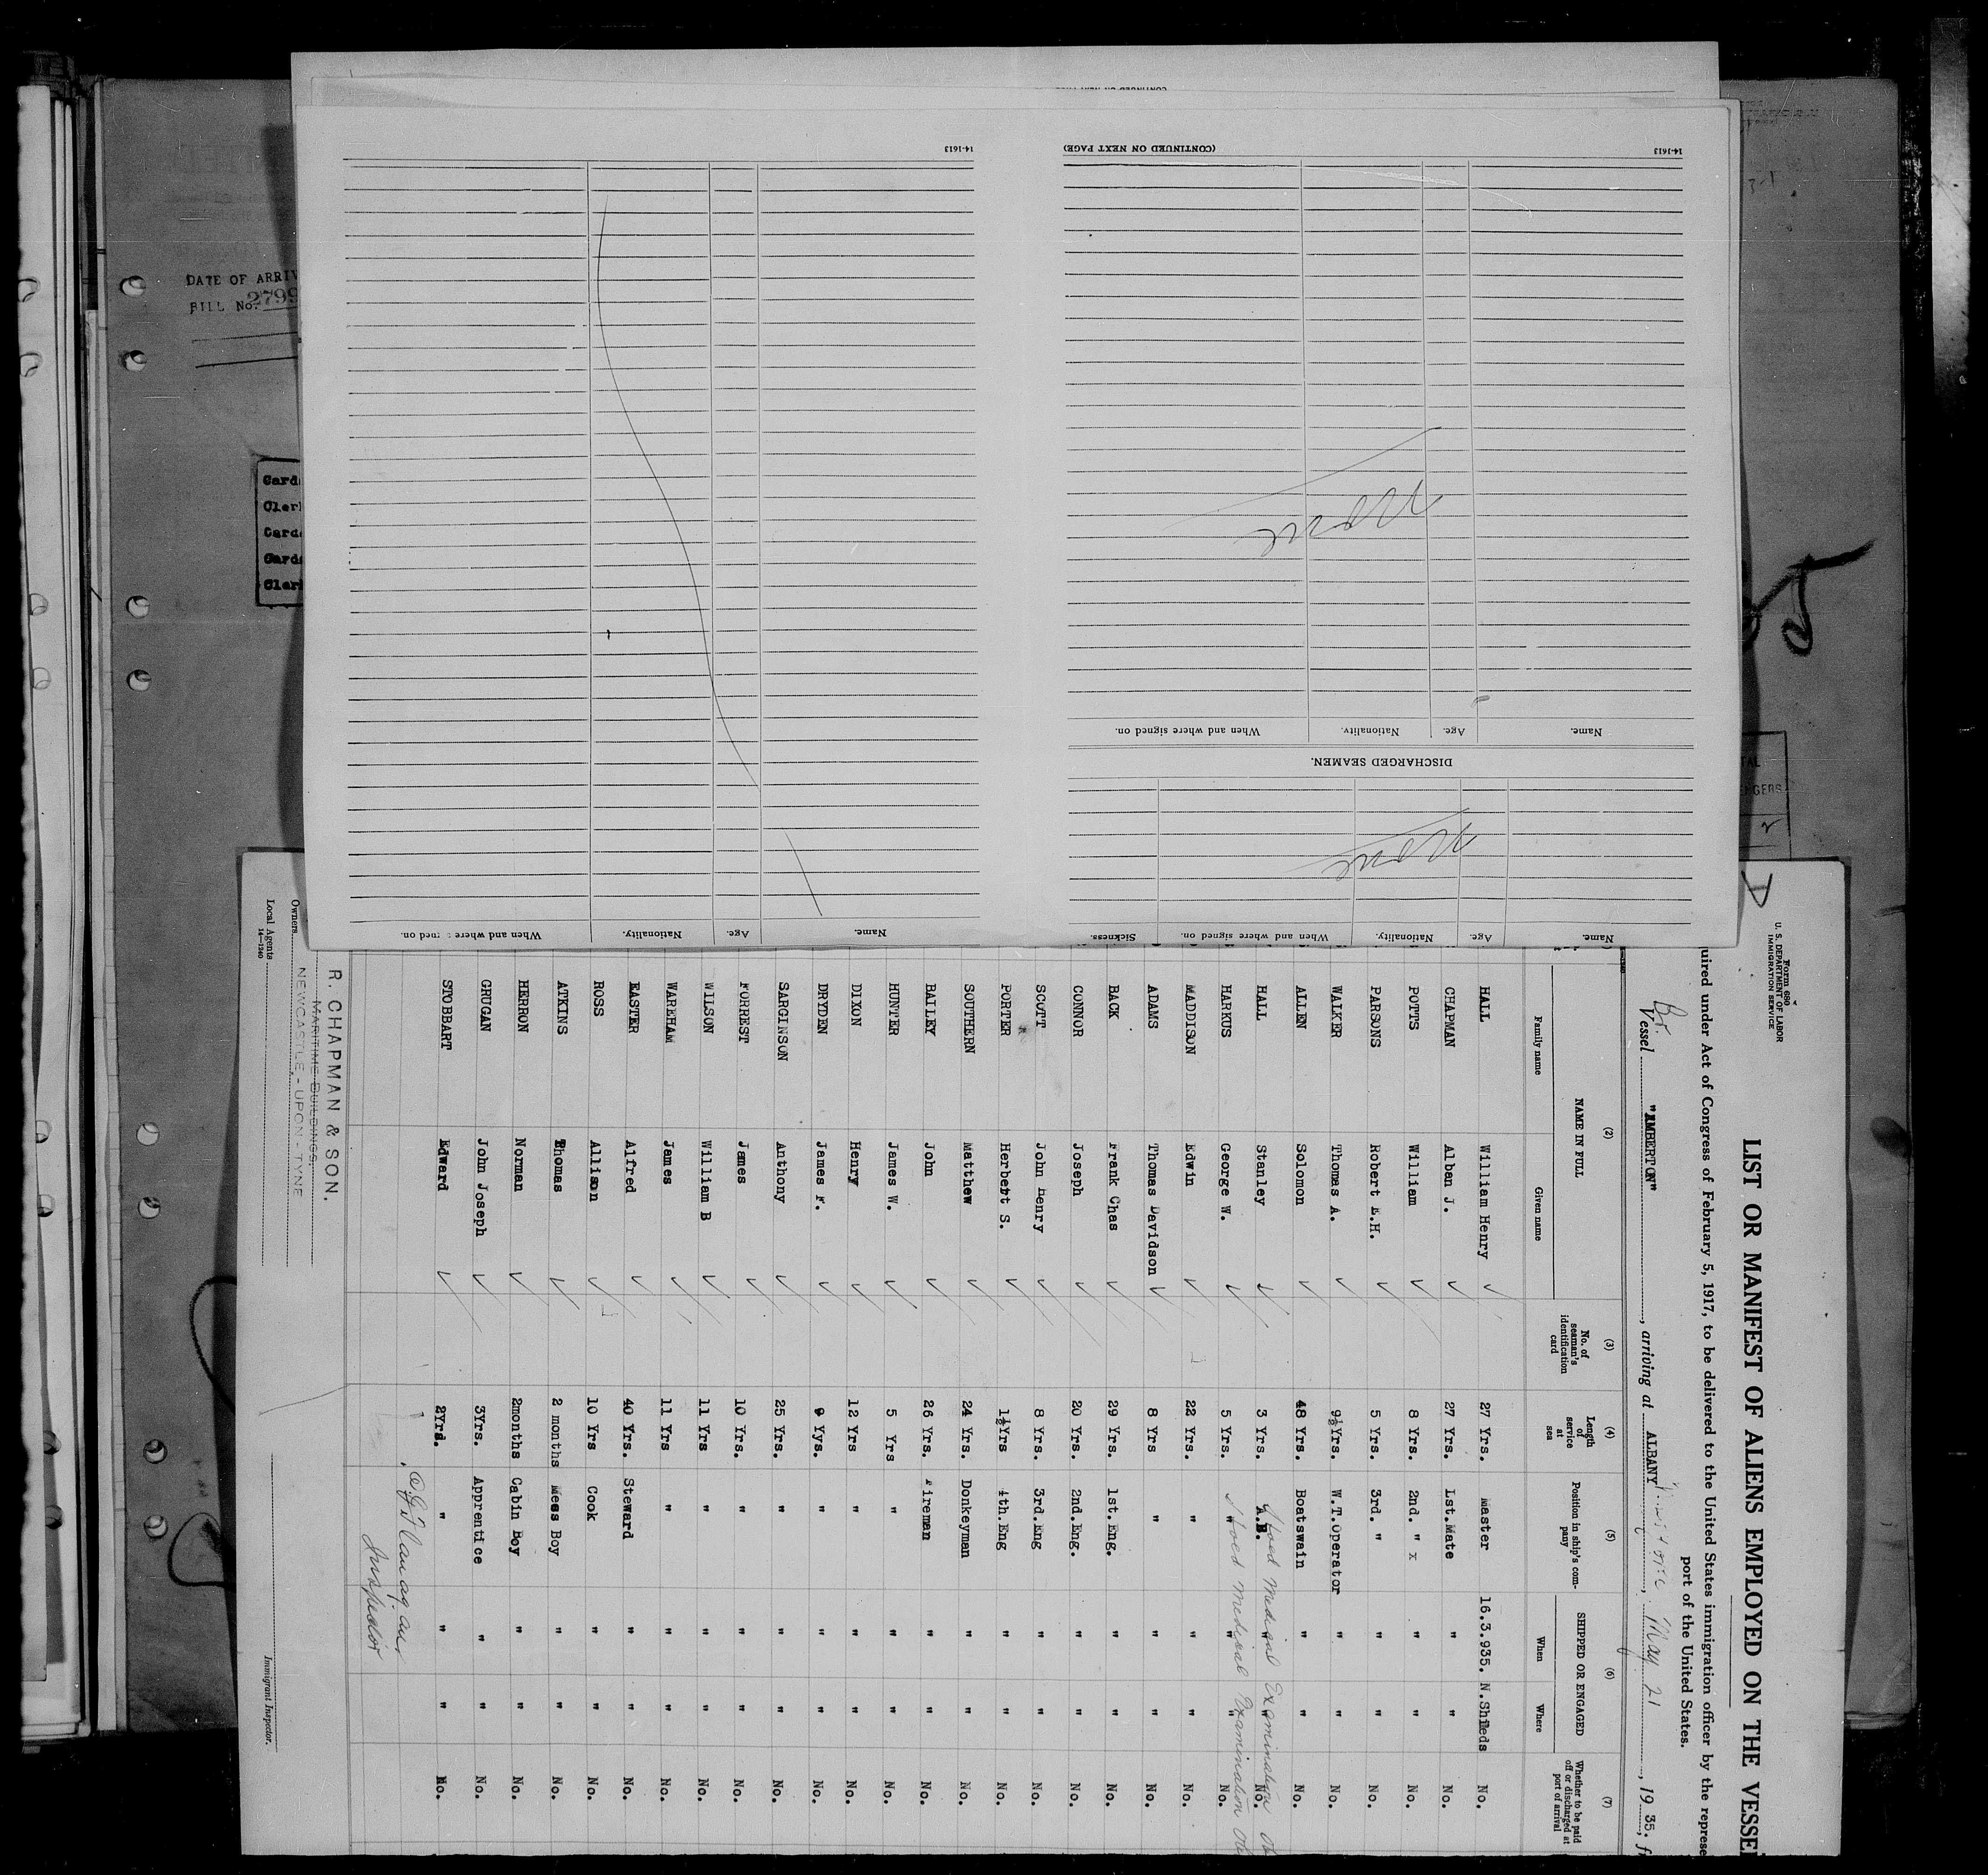 DATE OF ARRIV
BILL No. 2799
Card
Clerk
Card
Card
Clerk
14-1613
(CONTINUED ON NEXT PAGE)
14-1613
None
Name. Age. Nationality. When and where signed on.
DISCHARGED SEAMEN.
None
Name. Age. Nationality. When and where signed on. Sickness.
Name. Age. Nationality. When and where signed on.
TAL
ENGERS
Form 680
U. S. DEPARTMENT OF LABOR
IMMIGRATION SERVICE
LIST OR MANIFEST OF ALIENS EMPLOYED ON THE VESSEL
uired under Act of Congress of February 5, 1917, to be delivered to the United States immigration officer by the represe
port of the United States.
Br. Vessel "AMBERTON", arriving at ALBANY, May 21, 1935. f
(2) (3) (4) (5) (6) (7)
NAME IN FULL No. of seaman's identification card Length of service at sea Position in ship's company SHIPPED OR ENGAGED Whether to be paid off or discharged at port of arrival
Family name Given name When Where
HALL William Henry 27 Yrs. Master 16.3.935. N.Shields No.
CHAPMAN Alban J. 27 Yrs. Lst.Mate " " No.
POTTS William 8 Yrs. 2nd. " x " " No.
PARSONS Robert E.H. 5 Yrs. 3rd. " " " No.
WALKER Thomas A. 9½Yrs. W.T.Operator " " No.
ALLEN Solomon 48 Yrs. Boatswain " " No.
HALL Stanley 3 Yrs. A.B. " " No.
Stood Medical Examination Ok
HARKUS George W. 5 Yrs. " " " No.
Stood Medical Examination Ok
MADDISON Edwin 22 Yrs. " " " No.
ADAMS Thomas Davidson 8 Yrs " " " No.
BACK Frank Chas 29 Yrs. 1st.Eng. " " No.
CONNOR Joseph 20 Yrs. 2nd.Eng. " " No.
SCOTT John Henry 8 Yrs. 3rd.Eng " " No.
PORTER Herbert S. 1½Yrs 4th.Eng " " No.
SOUTHERN Matthew 24 Yrs. Donkeyman " " No.
BAILEY John 26 Yrs. Fireman " " No.
HUNTER James W. 5 Yrs " " " No.
DIXON Henry 12 Yrs " " " No.
DRYDEN James F. 9 Yys. " " " No.
SARGINSON Anthony 25 Yrs. " " " No.
FORREST James 10 Yrs. " " " No.
WILSON William B 11 Yrs " " " No.
WAREHAM James 11 Yrs " " " No.
EASTER Alfred 40 Yrs. Steward " " No.
ROSS Allison 10 Yrs Cook " " No.
ATKINS Thomas 2 months Mess Boy " " No.
HERRON Norman 2months Cabin Boy " " No.
GRUGAN John Joseph 3Yrs. Apprentice " " No.
STOBBART Edward 2Yrs. " " " No.
Inspector
R. CHAPMAN & SON.
MARITIME BUILDINGS,
NEWCASTLE,-UPON-TYNE
Owners
Local Agents
14-1240
Immigrant Inspector.